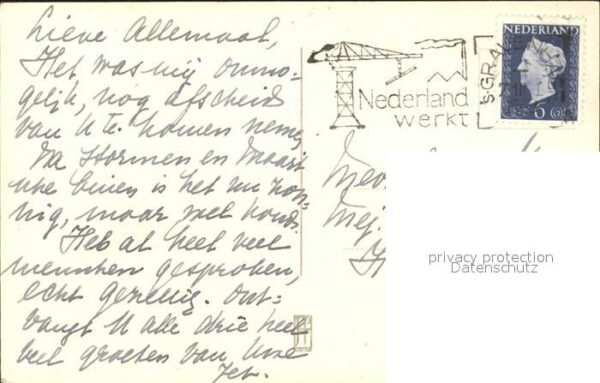 Lieve Allemaal,
Het was mij onmo-
gelijk, nog afscheid
van U te komen nemen
Na stormen en
is het nu zon-
nig, maar wel koud.
Heb al heel veel
menschen gesproken,
echt gezellig. Ont-
vangt U alle drie heel
veel groeten van Uwe
Jet.
Nederland
werkt
's GRAVENHAGE
NEDERLAND
6 ct
Mej.
privacy protection
Datenschutz